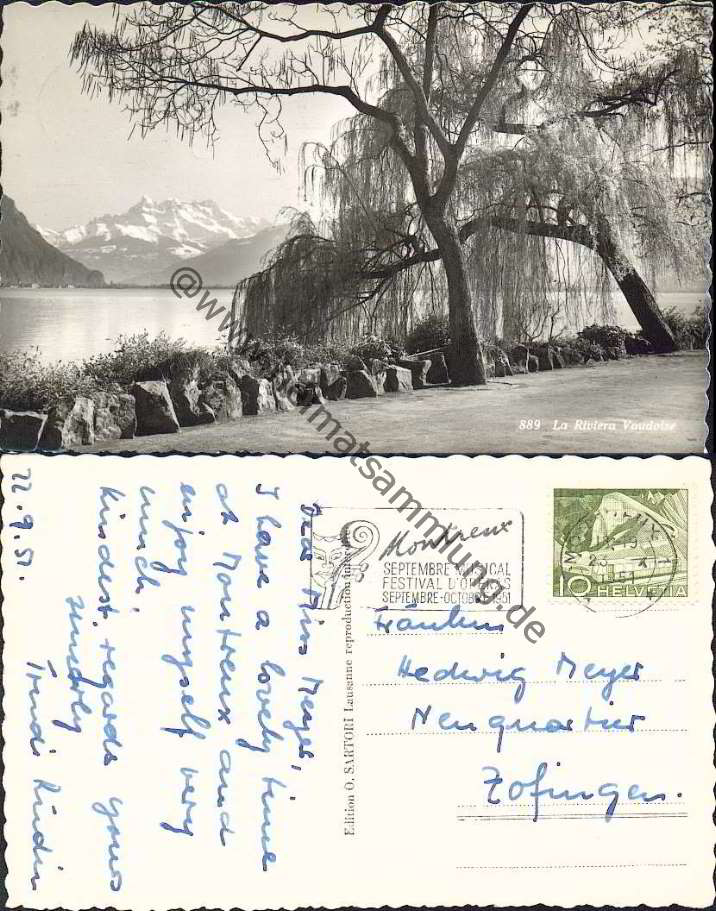 889 La Riviera Vaudoise
www.heimatsammlung.de
22.9.51.
Dear Miss Meyer,
I have a lovely time
at Montreux and
enjoy myself very
much.
Kindest regards yours
Trudi Rüdin
Edition O. SARTORI Lausanne reproduction interdite
Montreux
SEPTEMBRE MUSICAL
FESTIVAL D'OPÉRAS
SEPTEMBRE-OCTOBRE 1951
10 HELVETIA
Fräulein
Hedwig Meyer
Neuquartier
Zofingen.